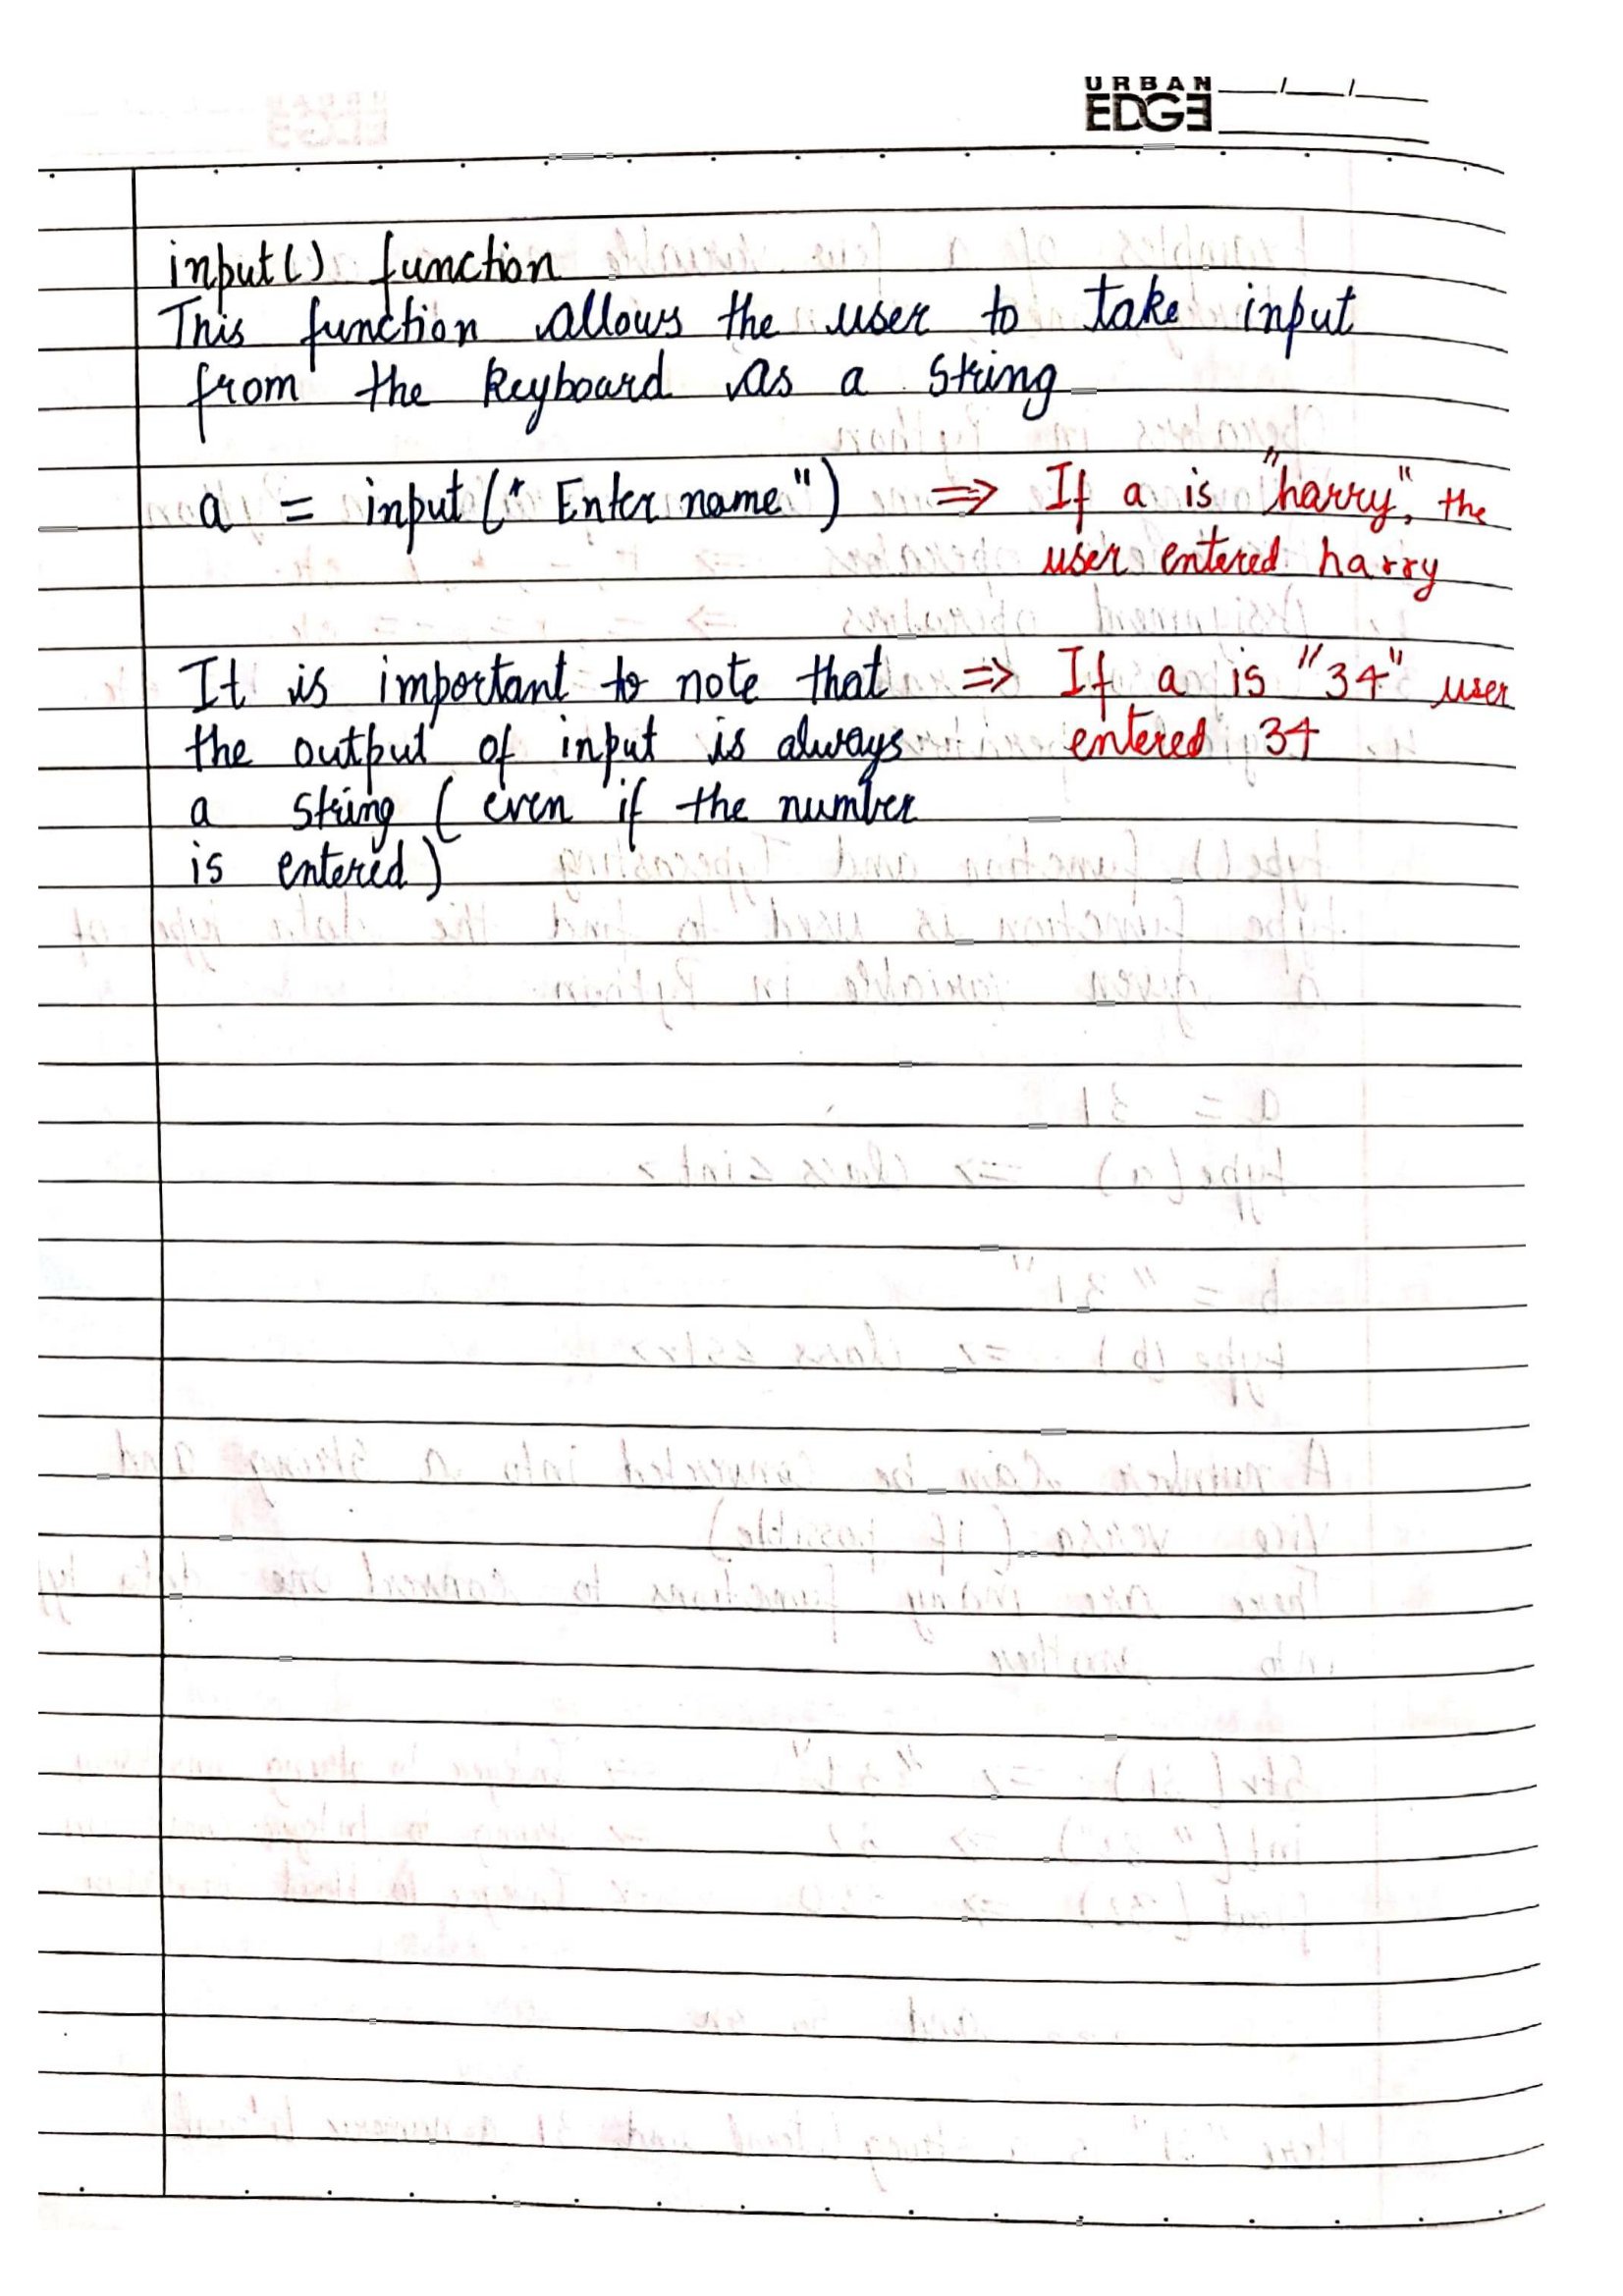 URBAN
EDGE
input() function
This function allows the user to take input
from the keyboard as a string
a = input(" Enter name") => If a is "harry", the
user entered harry
It is important to note that => If a is "34" user
the output of input is always entered 34
a string ( even if the number
is entered)